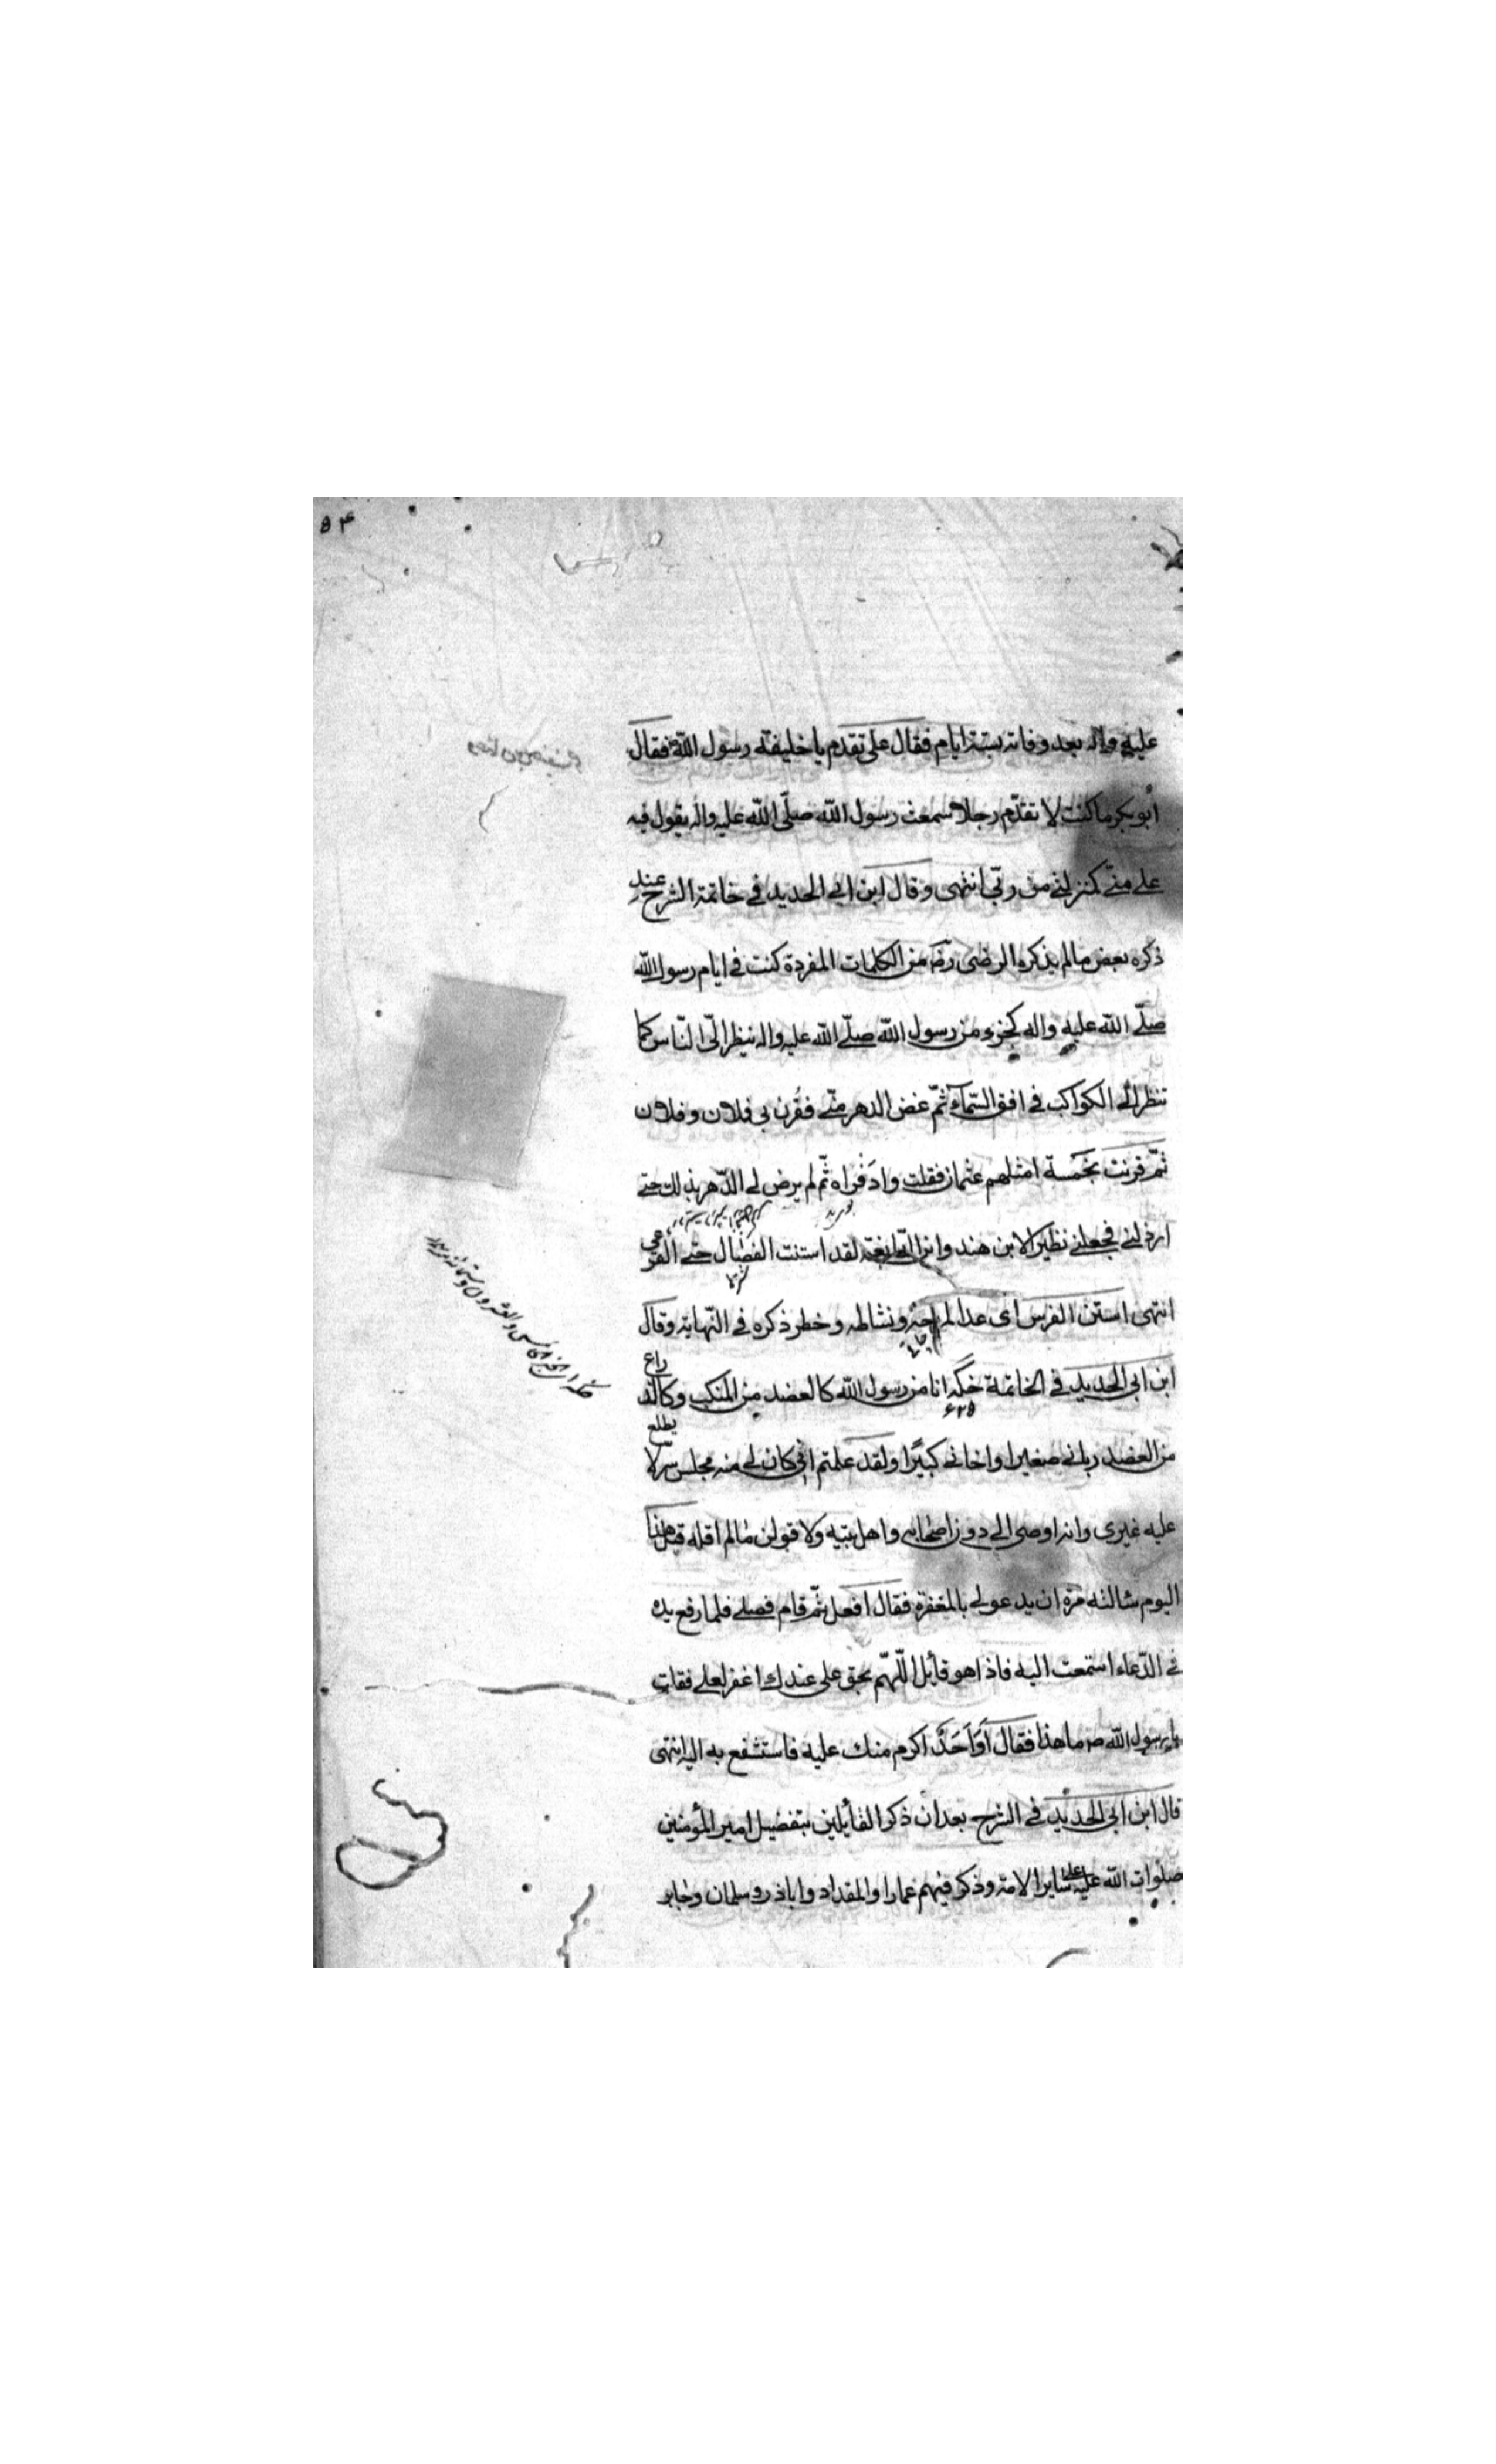 ۵۴
عليه واله بعد وفاته بستة ايام فقال على تقدم يا خليفة رسول الله فقال
أبو بكر ما كنت لا تقدّم رجلا سمعت رسول الله صلّى الله عليه واله يقول فيه
على منّى كمنزلتى من ربّى انتهى وقال ابن ابى الحديد في خاتمة الشرح عند
ذكره بعض مالم يذكره الرضى رضه من الكلمات المفردة كنت في ايام رسول الله
صلّى الله عليه واله كجزء من رسول الله صلّى الله عليه واله ينظر الىّ النّاس كما
تنظر الى الكواكب في افق السّمآء ثمّ غض الدهر منّى فقُرن بى فلان وفلان
ثمّ قرنت بخمسة امثلهم عثمان فقلت واذَفراه ثمّ لم يرض لى الدّهر بذلك حتى
ارذلنى فجعلنى نظيرا لابن هند وابن النابغة لقد استنت الفصال حتى القرعى
انتهى استن الفرس اى عدا لمراحه ونشاطه وخطر ذكره في النّهاية وقال
ابن ابى الحديد في الخاتمة انا من رسول الله كالعضد من المنكب وكالذراع
۶۲۵
من العضد ربانى صغيرا واخانى كبيرًا ولقد علمتم انى كان لى منه مجلس سرّ لا يطلع
عليه غيرى وانه اوصى الى دون اصحابه واهل بيته ولا قولن مالم اقله قبل هذا
اليوم سالته مرّة ان يدعو لى بالمغفرة فقال افعل ثمّ قام فصلى فلما رفع يده
في الدّعاء استمعت اليه فاذا هو قائل اللّهمّ بحق على عندك اغفر لعلى فقلت
يا رسول الله ما هذا فقال اوَاَحَدٌ اكرم منك عليه فاستشفع به اليه انتهى
قال ابن ابى الحديد في الشرح بعد ان ذكر القائلين بتفضيل امير المؤمنين
صلوات الله عليه على ساير الامة وذكر فيهم عمارا والمقداد وابا ذر وسلمان وجابر